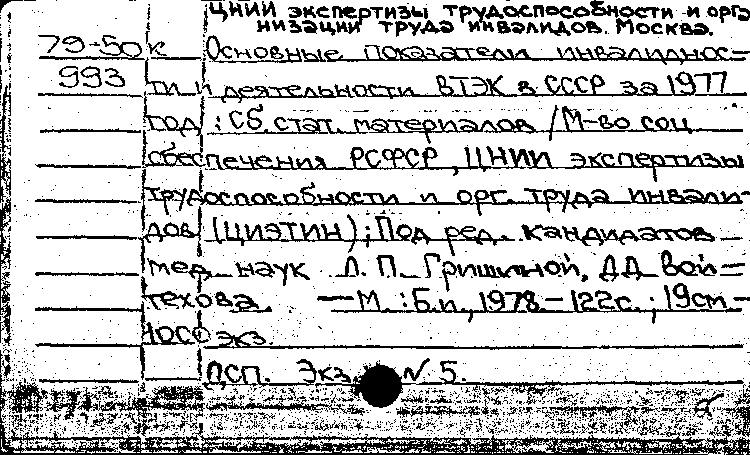 ЦНИИ экспертизы трудоспособности и орга
низации труда инвалидов. Москва.
79-50к Основные показатели инвалиднос=
993 ти и деятельности ВТЭК в СССР за 1977
год : Сб. стат. материалов / М-во соц
обеспечения РСФСР, ЦНИИ экспертизы
трудоспособности и орг. труда инвали-
дов (ЦИЭТИН); Под ред. кандидатов
мед. наук Л. П. Гришиной, Д.Д. Вой=
техова. — М. : Б.и., 1978. — 122с. ; 19см —
экз.
ДСП. Экз. N 5.